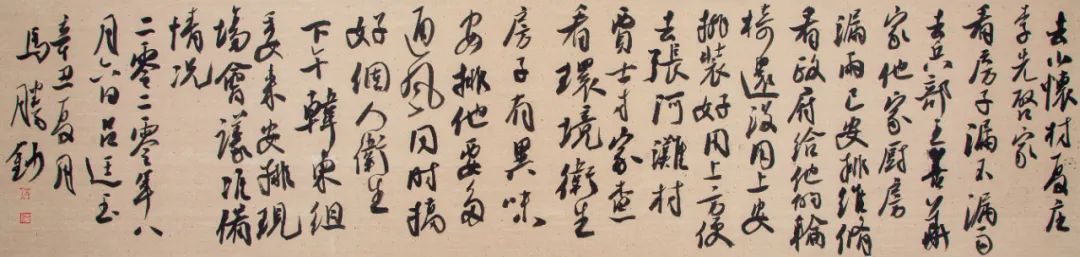 去小懷村夏庄
李先啓家
看房子漏不漏雨
去兵部王善華
家他家廚房
漏雨已安排維脩
看政府給他的輪
椅還沒用上安
排裝好用上方便
去張阿灘村
賈士才家查
看環境衛生
房子有異味
安排他要多
通風同时搞
好個人衛生
下午韓東組
長来安排現
場會議准備
情况
二零二零年八
月六日吕
辛丑夏月
馬騰鈔